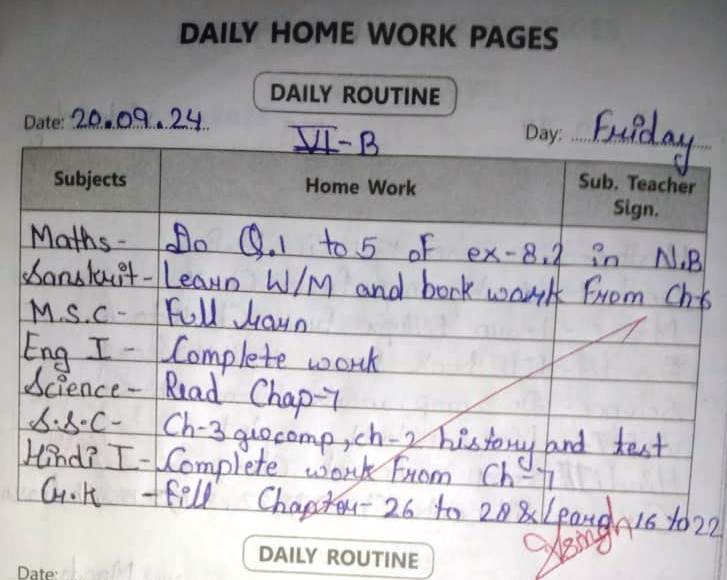 DAILY HOME WORK PAGES
DAILY ROUTINE
Date: 20.09.24 Day: Friday
VI-B
Subjects Home Work Sub. Teacher Sign.
Maths - Do Q.1 to 5 of ex-8.2 in N.B
Sanskrit - Learn W/M and book work from Ch-6
M.S.C - Full learn
Eng I - Complete work
Science - Read Chap-7
S.S.C - Ch-3 geocomp, ch-2 history and test
Hindi I - Complete work from Ch-7
G.K - fill Chapter- 26 to 28 & learn 16 to 22
DAILY ROUTINE
Date: